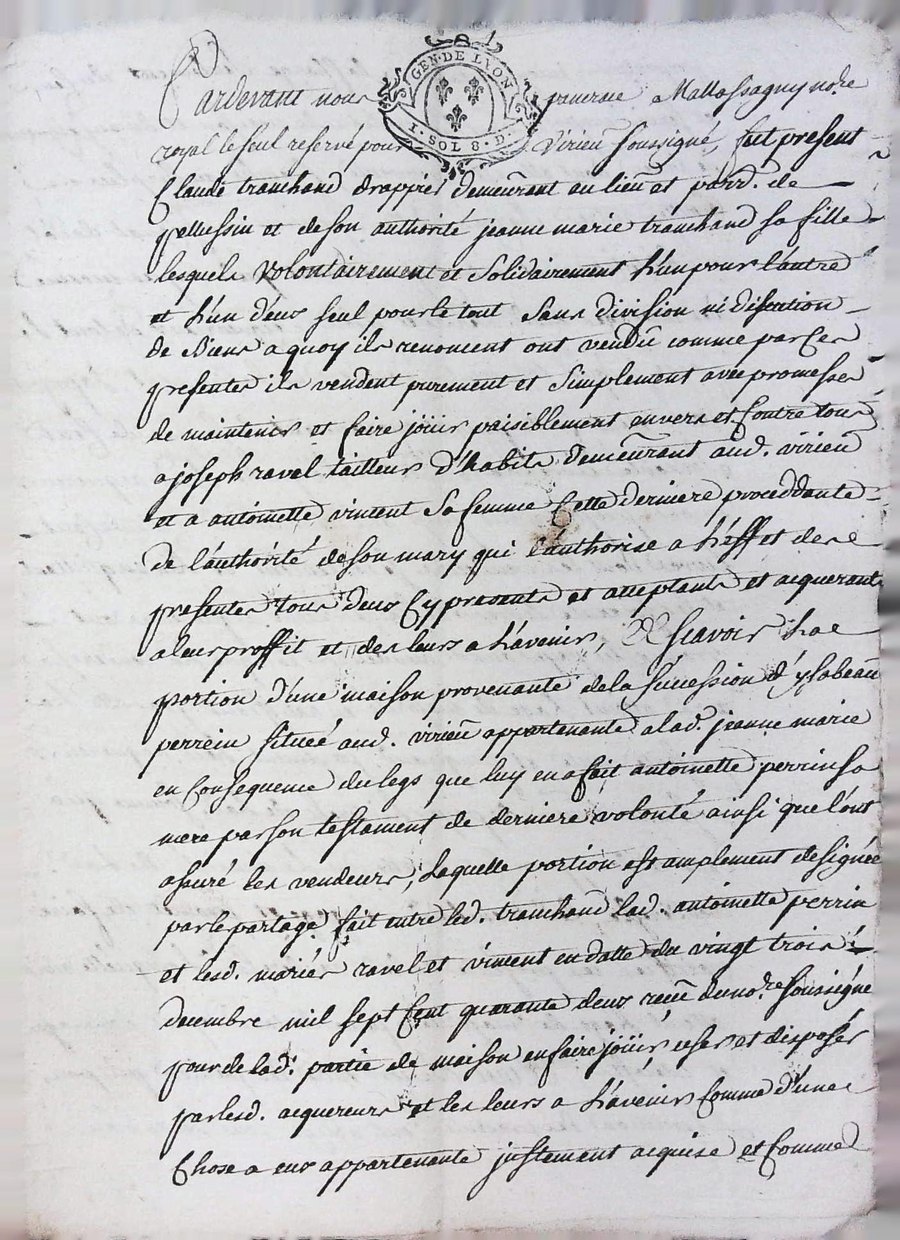 GEN. DE LYON
1 . SOL 8 . D.
Pardevant nous a Mallassagny nore
royal le seul reservé pour Virieu soussigné, fut present
Claude tranchand drappier demeurant au lieu et parr. de
pellussin et de son authorité jeanne marie tranchand sa fille
lesquels volontairement et solidairement l'un pour l'autre
et l'un d'eux seul pour le tout sans division ni discution
de biens a quoy ils renoncent ont vendu comme par ces
presentes ils vendent purement et simplement avec promesse
de maintenir et faire jöuir paisiblement envers et contre tous
a joseph ravel tailleur d'habits demeurant aud. virieu
et a antoinette vincent sa femme Cette derniere proceddante
de l'authorité de son mary qui l'authorise a l'effet des
presentes tous deux Cy presents et acceptants et acquerants
a leur proffit et des leurs a l'avenir, Scavoir la
portion d'une maison provenante de la sucession d'ysabeau
perrein situeé aud. virieu appartenante a lad. jeanne marie
en Consequence du legs que luy en a fait antoinette perrin sa
mere par son testament de derniere volonté ainsi que l'ont
assuré les vendeurs, laquelle portion est amplement designée
par le partage fait entre led. tranchand lad. antoinette perrin
et lesd. mariés ravel et vincent en datte du vingt trois
decembre mil sept Cent quarante deux receu du nore soussigné
pour de lad. partie de maison en faire jöuir user et disposer
par lesd. acquereurs et les leurs a l'avenir Comme d'une
Chose a eux appartenante justement acquise et Comme